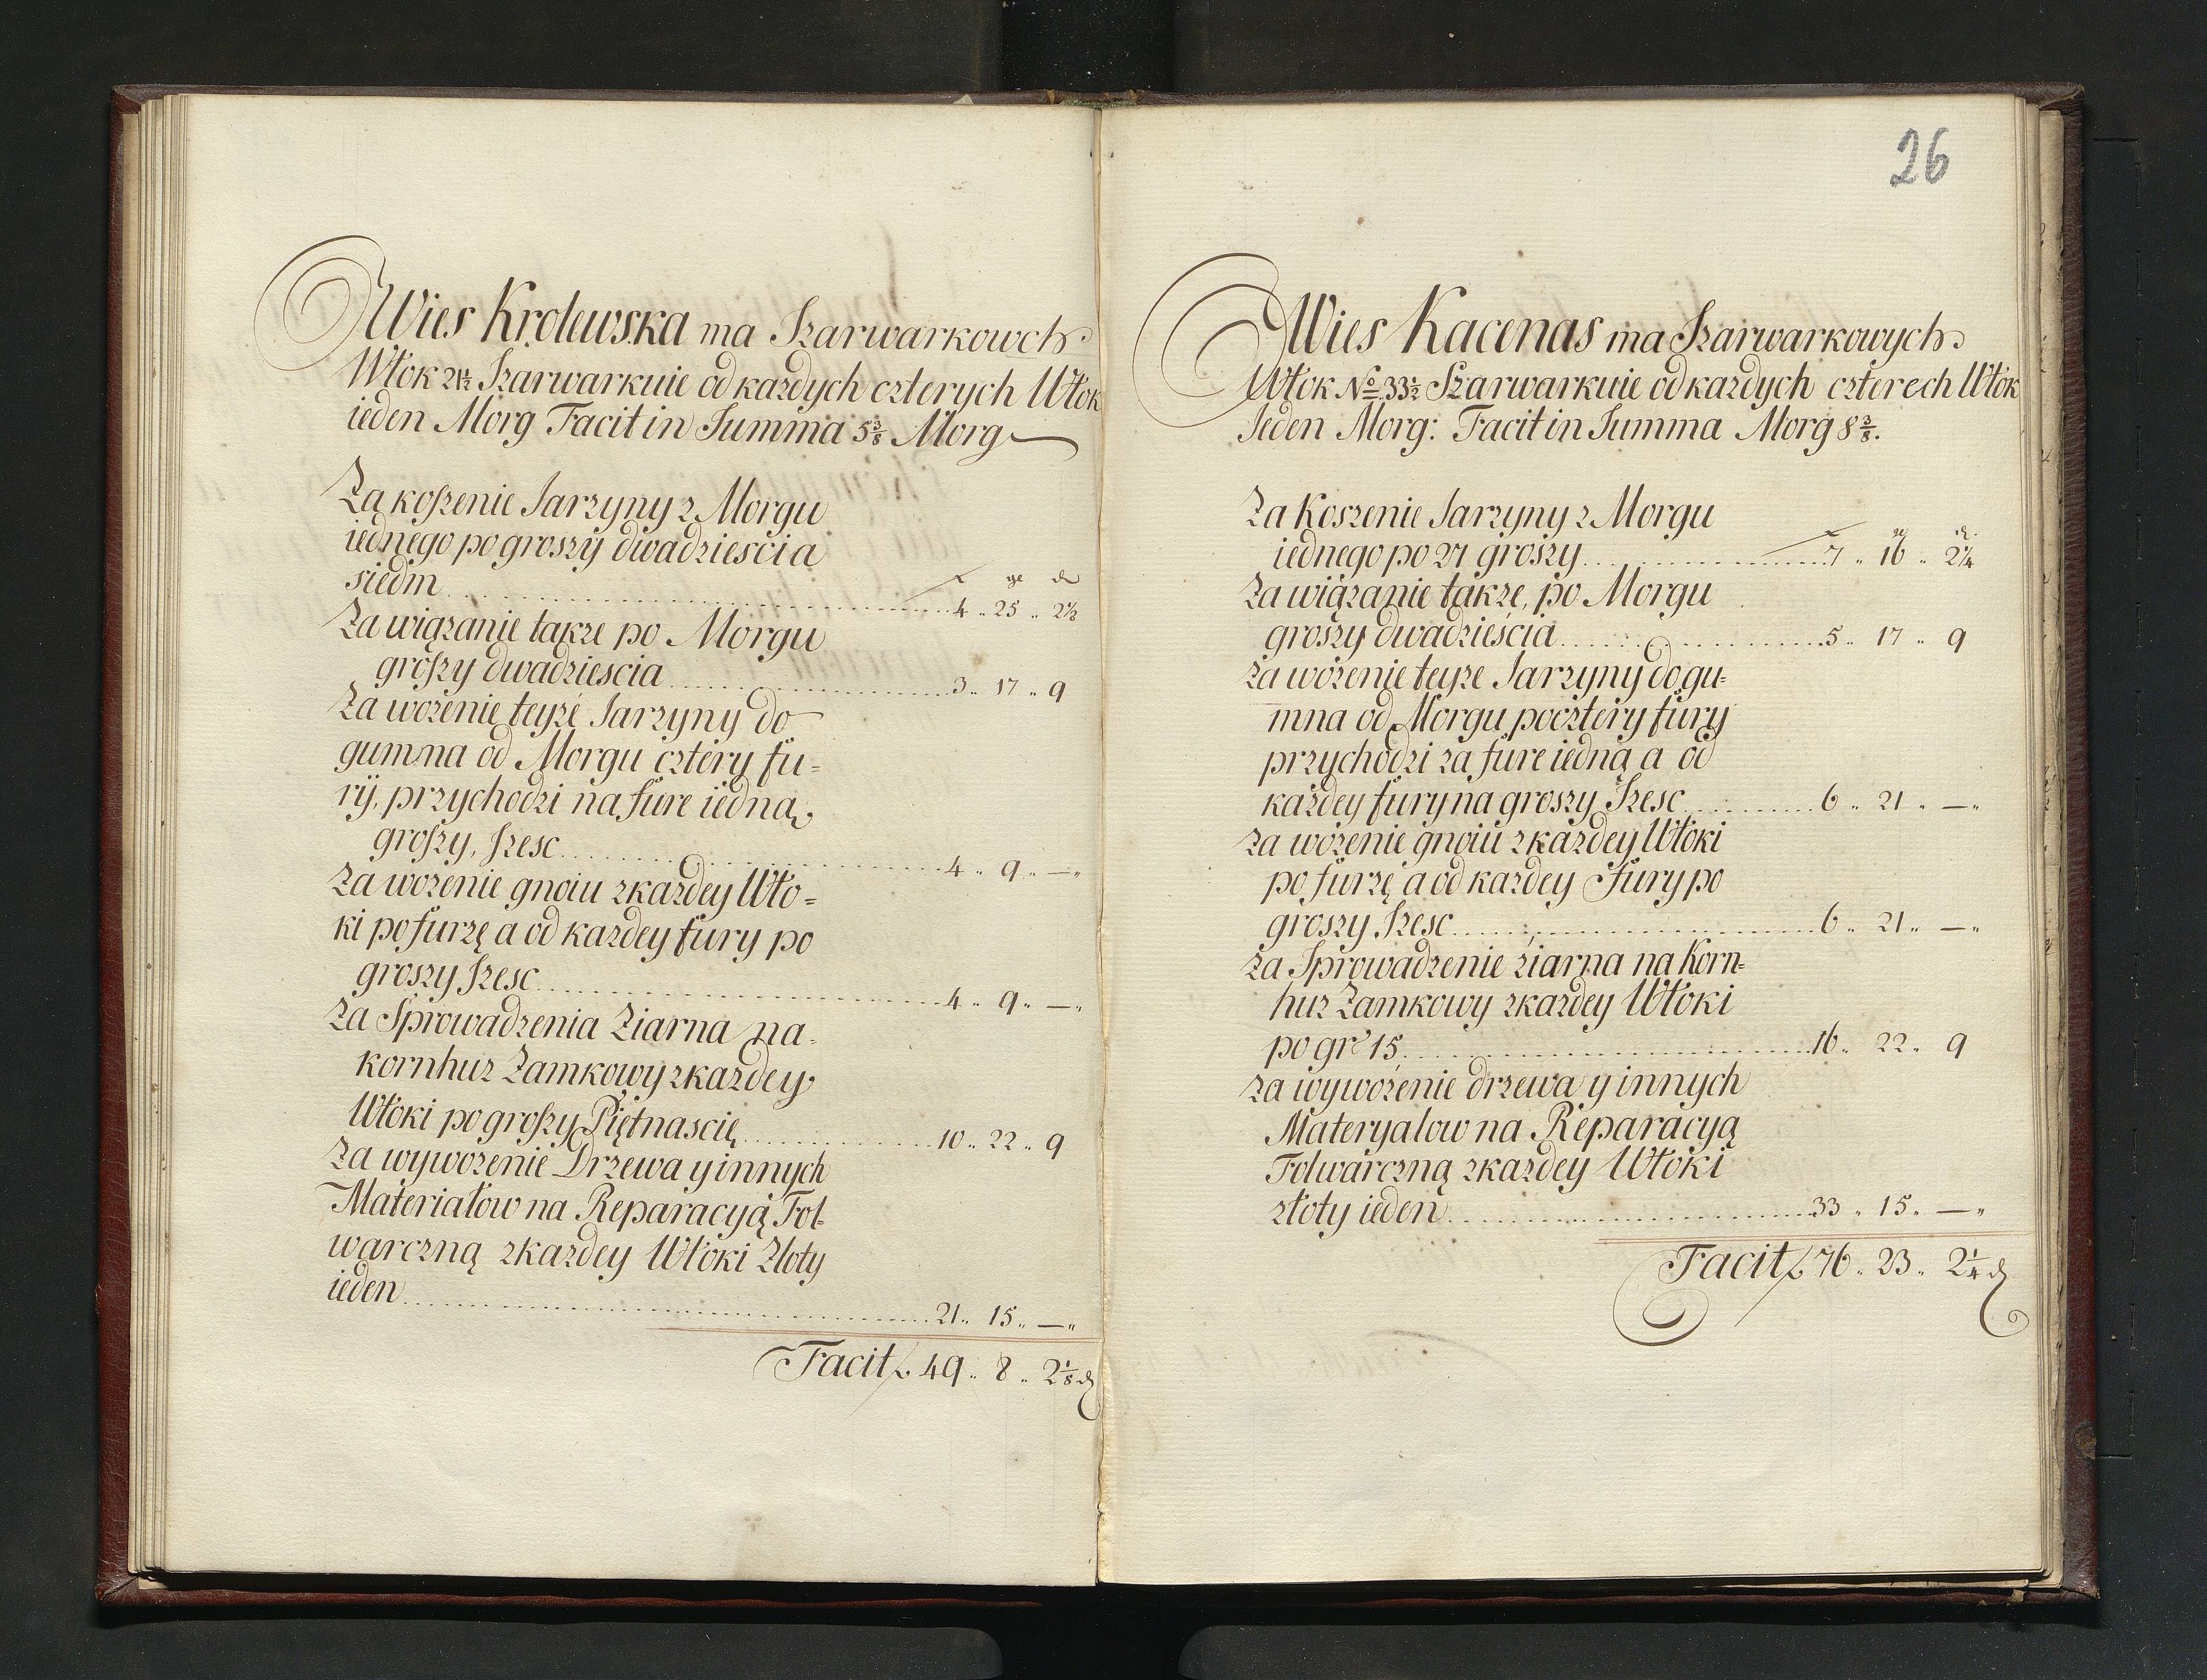 Wies Krolewska ma Szarwarkowch
Włok 21½ Szarwarkuie od kazdych czterych Włok
ieden Morg Facit in Summa 5⅜ Morg
Za koszenie Jarzyny z Morgu
iednego po groszy dwadziescia
siedm
gr d
4 „ 25 „ 2⅛
Za wiązanie takze po Morgu
groszy dwadziescia 3 „ 17 „ 9
Za wozenie teyze Jarzyny do
gumna od Morgu cztery fu=
ry, przychodzi na fure iedna
groszy, szesc 4 „ 9 „ — „
Za wozenie gnoiu zkazdey Wło=
ki po furzę a od kazdey fury po
groszy szesc 4 „ 9 „ — „
Za Sprowadzenia Ziarna na=
kornhuz Zamkowy zkazdey
Włoki po groszy Piętnascię 10 „ 22 „ 9
Za wywozenie Drzewa y innych
Materiałow na Reparacyą Fol=
warczną zkazdey Włoki Zloty
ieden 21 „ 15 „ — „
Facit 49 „ 8 „ 2⅛ d
26
Wies Kacenas ma Szarwarkowych
Włok No 33½ Szarwarkuie od kazdych czterech Włok
Jeden Morg: Facit in Summa Morg 8⅜.
Za Koszenie Jarzyny z Morgu
gr d.
iednego po 27 groszy 7 „ 16 „ 2¼
Za wiązanie takze, po Morgu
groszy dwadzieścia 5 „ 17 „ 9
Za wozenie teyze Jarzyny do gu=
mna od Morgu po cztery fury
przychodzi za fure iedną a od
kazdey fury na groszy Szesc 6 „ 21 „ — „
Za wozenie gnoiu zkazdey Włoki
po furzę a od kazdey Fury po
groszy Szesc 6 „ 21 „ — „
Za Sprowadzenie ziarna na Korn=
huz Zamkowy zkazdey Włoki
po gr 15 16 „ 22 „ 9
Za wywozenie drzewa y innych
Materyalow na Reparacyą
Folwarczną zkazdey Włoki
złoty ieden 33 „ 15 „ — „
Facit 76 „ 23 „ 2¼ d